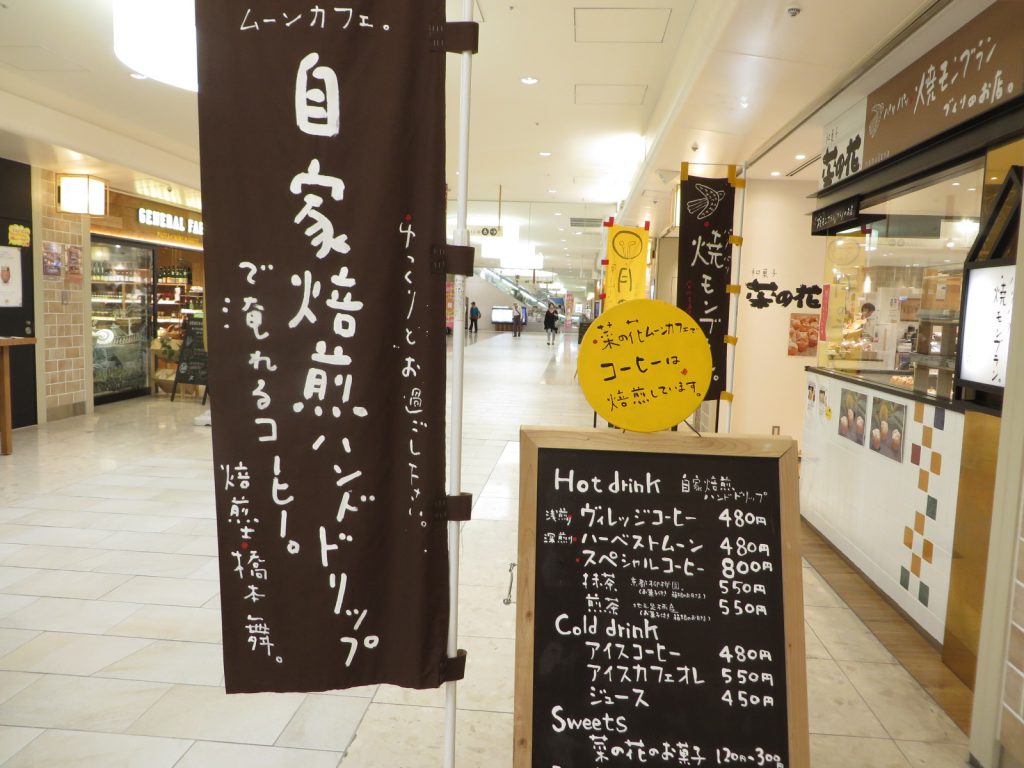 ムーンカフェ。
自家焙煎ハンドドリップ
で淹れるコーヒー。
焙煎士・橋本舞。
ゆっくりとお過ごし下さい。
GENERAL FA
焼モンブラン
月の
菜の花ムーンカフェで
コーヒーは
焙煎しています。
和菓子
菜の花
菜の花
焼モンブラン
づくりのお店。
焼モンブラン。
Hot drink 自家焙煎
ハンドドリップ
浅煎り ヴィレッジコーヒー 480円
深煎り ハーベストムーン 480円
スペシャルコーヒー 800円
抹茶 550円
煎茶 550円
Cold drink
アイスコーヒー 480円
アイスカフェオレ 550円
ジュース 450円
Sweets
菜の花のお菓子 120円~300円